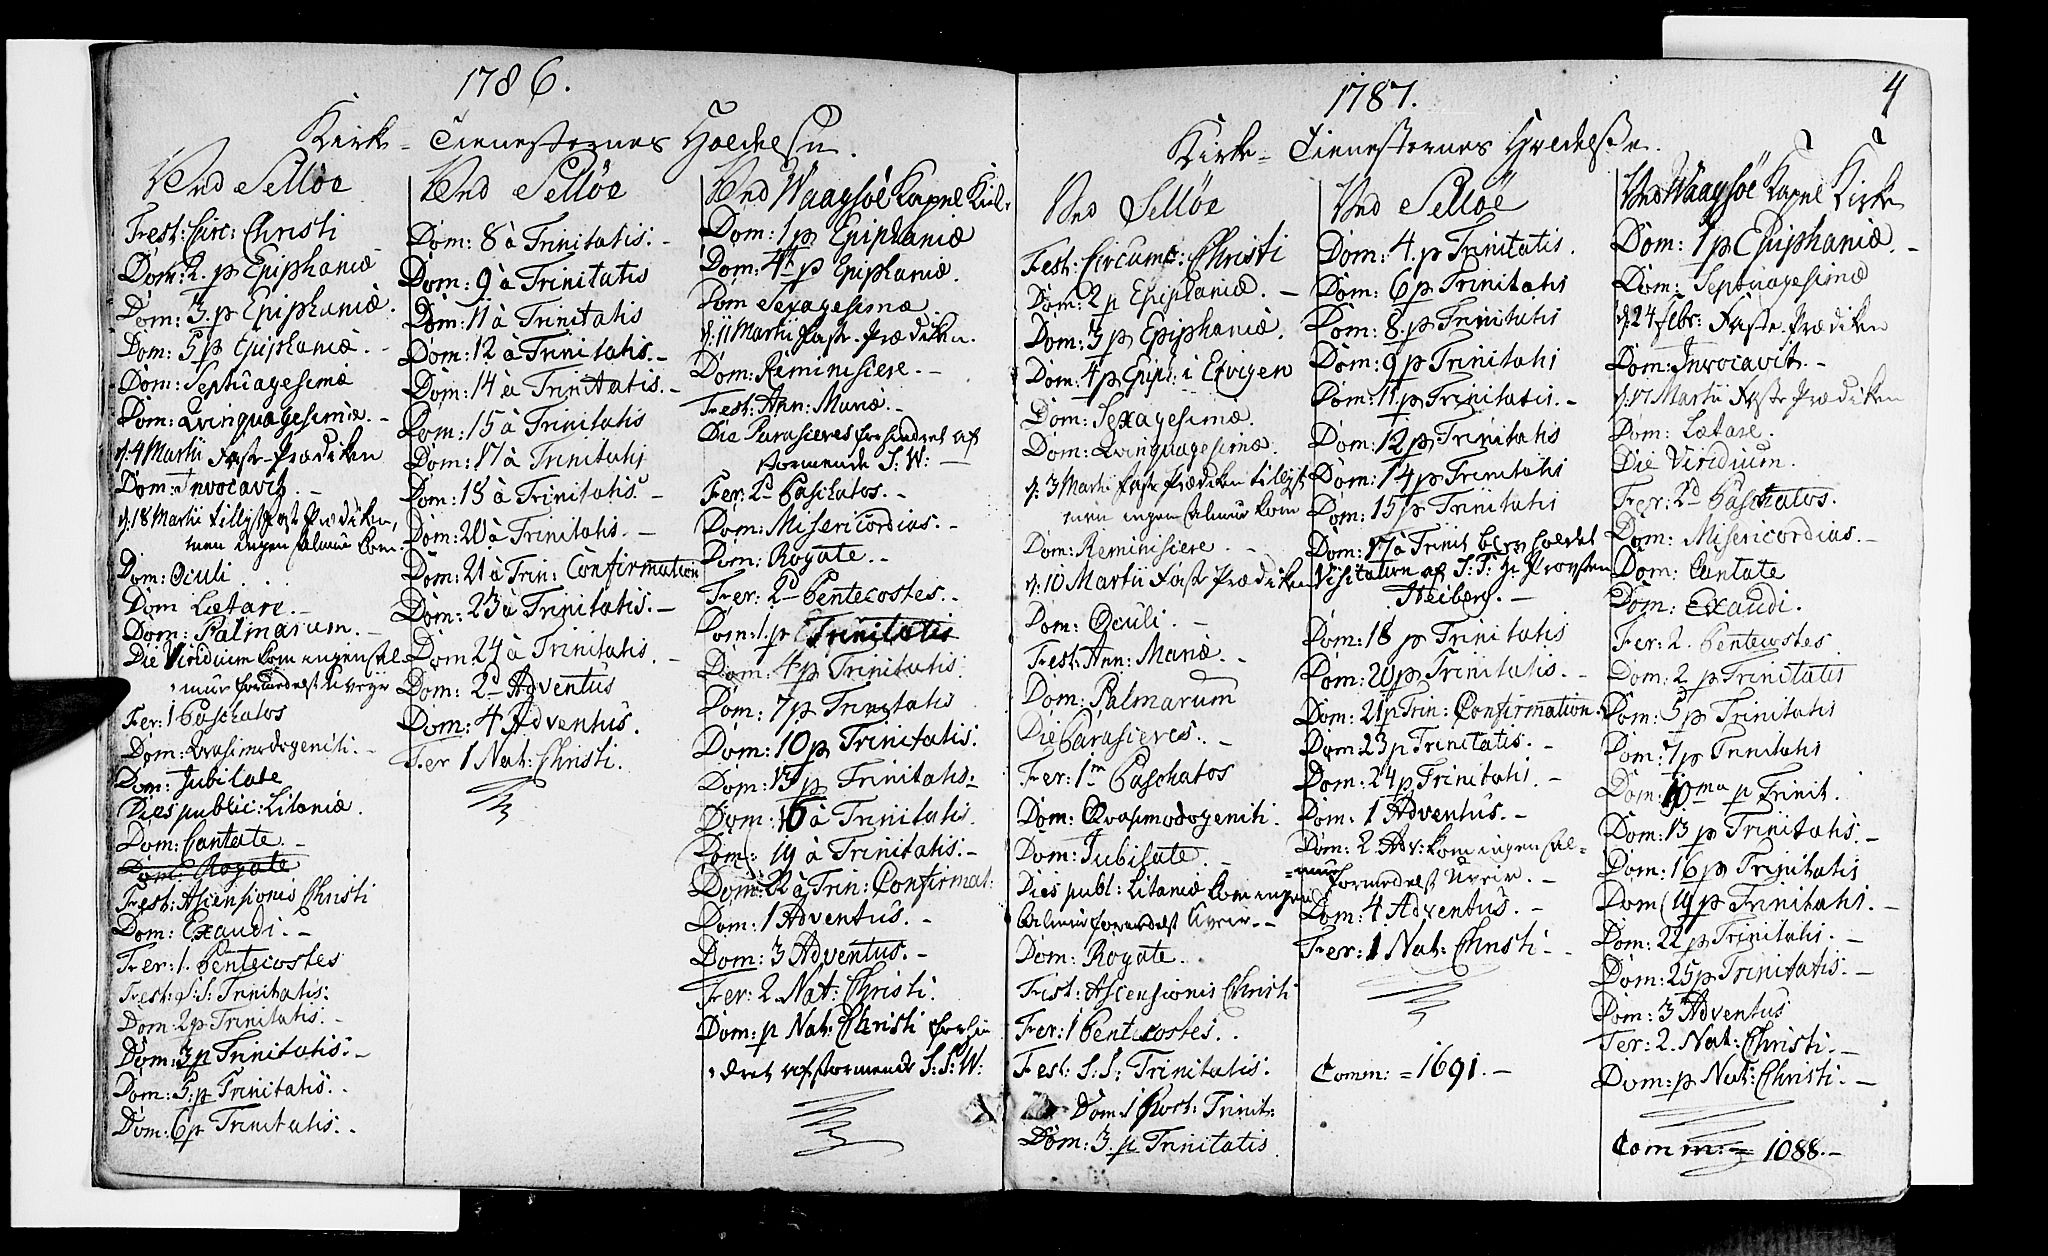 1786.
Kirke-Tienesternes Holdelse.
Ved Selløe
Fest: Circ: Christi
Dom: 2. p Epiphaniæ
Dom: 3. p Epiphaniæ.
Dom: 5 p Epiphaniæ.-
Dom: Septuagesimæ
Dom: Qvinquagesimæ.-
d: 4 Martii Faste-Prædiken
Dom: Invocavit.-
d: 18 Martii tillyst Fast Prædiken,
men ingen Almue kom.
Dom: Oculi.
Dom Lætare.-
Dom: Palmarum.-
Die Viridium kom ingen Al-
mue formedelst Uveyr
Fer: 1 Paschatos
Dom: Qvasimodogeniti.-
Dom: Jubilate
Dies public: Litaniæ.
Dom: Cantate.-
Dom: Rogate
Fest: Ascensionis Christi
Dom: Exaudi.-
Fer: 1. Pentecostes
Fest: S: S: Trinitatis.
Dom: 2 p Trinitatis.-
Dom: 3 p Trinitatis.-
Dom: 5: p Trinitatis.
Dom: 6 p Trinitatis.
Ved Selløe
Dom: 8 à Trinitatis.-
Dom: 9 à Trinitatis
Dom: 11 à Trinitatis
Dom: 12 à Trinitatis.-
Dom: 14 à Trinitatis.-
Dom: 15 à Trinitatis
Dom: 17 à Trinitatis
Dom: 18 à Trinitatis.-
Dom: 20 à Trinitatis.-
Dom: 21 à Trin: Confirmation
Dom: 23 à Trinitatis.-
Dom 24 à Trinitatis.
Dom: 2d Adventus
Dom: 4 Adventus.
Fer 1 Nat: Christi.
Ved Waagsøe Kapel Kirk.
Dom: 1 p Epiphaniæ
Dom: 4 p Epiphaniæ.
Dom Sexagesimæ
d: 11 Martii Faste-Prædiken.
Dom: Reminisiere.-
Fest: Ann: Mariæ.-
Die Parasieves forhindret af
stormende S: W:
Fer: 2d Paschatos.-
Dom: Misericordias.-
Dom: Rogate.-
Fer: 2d Pentecostes.-
Dom: 1. p Trinitatis
Dom: 4 p Trinitatis.
Dom: 7 p Trinitatis
Dom: 10 p Trinitatis.
Dom: 13 p Trinitatis.-
Dom: 16 à Trinitatis.
Dom: 19 à Trinitatis.-
Dom: 22 à Trin: Confirmat:
Dom: 1 Adventus.-
Dom: 3 Adventus.-
Fer: 2. Nat: Christi.
Dom: p Nat: Christi forhin
dret af stormende S: S: W:
1787.
4
Kirke-Tienesternes Holdelse.
Ved Selløe
Fest: Circumc: Christi
Dom: 2 p Epiphaniæ.-
Dom: 3 p Epiphaniæ.
Dom: 4 p Epiph: i Eivigen
Dom: Sexagesimæ.
Dom: Qvinquagesimæ.
d: 3 Martii Fast Prædiken tillyst
men ingen Almue kom
Dom: Reminisiere.-
d: 10 Martii Fast Prædiken
Dom: Oculi.-
Fest: Ann: Mariæ.-
Dom: Palmarum
Die Parasieves.-
Fer: 1m Paschatos
Dom: Qvasimodogeniti.
Dom: Jubilate.-
Dies publ: Litaniæ kom ingen
Almue formedelst Uveir.-
Dom: Rogate.
Fest: Ascensionis Christi
Fer: 1 Pentecostes.
Fest: S: S: Trinitatis.
Dom: 1 Post: Trinit:
Dom: 3. p Trinitatis.
Ved Selløe
Dom: 4. p Trinitatis.
Dom: 6 p Trinitatis
Dom: 8. p Trinitatis
Dom: 9 p Trinitatis
Dom: 11 p Trinitatis.-
Dom: 12 p Trinitatis
Dom: 14 p Trinitatis
Dom: 15 p Trinitatis
Dom: 17 à Trinit blev holdet
Visitation af S: T: Hr Provsten
Heiberg.-
Dom: 18 p Trinitatis
Dom: 20 p Trinitatis.-
Dom: 21 p Trin: Confirmation.
Dom: 23 p Trinitatis.-
Dom: 24 p Trinitatis.-
Dom: 1 Adventus.-
Dom: 2 Adv: kom ingen Al-
mue formedelst Uveir.-
Dom: 4 Adventus.-
Fer: 1 Nat: Christi-
Comm: = 1691.-
Ved Waagsøe Kapel Kirke
Dom: 1 p Epiphaniæ.-
Dom: Septuagesimæ
d: 24 Febr: Faste Prædiken
Dom: Invocavit.-
d: 17 Martii Faste Prædiken
Dom: Lætare.
Die Viridium.
Fer: 2d Paschatos.
Dom: Misericordias.-
Dom: Cantate
Dom: Exaudi.
Fer: 2. Pentecostes
Dom: 2 p Trinitatis
Dom: 5 p Trinitatis
Dom: 7 p Trinitatis
Dom: 10ma p Trinit.
Dom: 13 p Trinitatis.-
Dom: 16 p Trinitatis
Dom: 19 p Trinitatis.-
Dom: 22 p Trinitatis.-
Dom: 25 p Trinitatis.-
Dom: 3 Adventus
Fer: 2. Nat: Christi.-
Dom: p Nat: Christi.-
Comm: = 1088.-